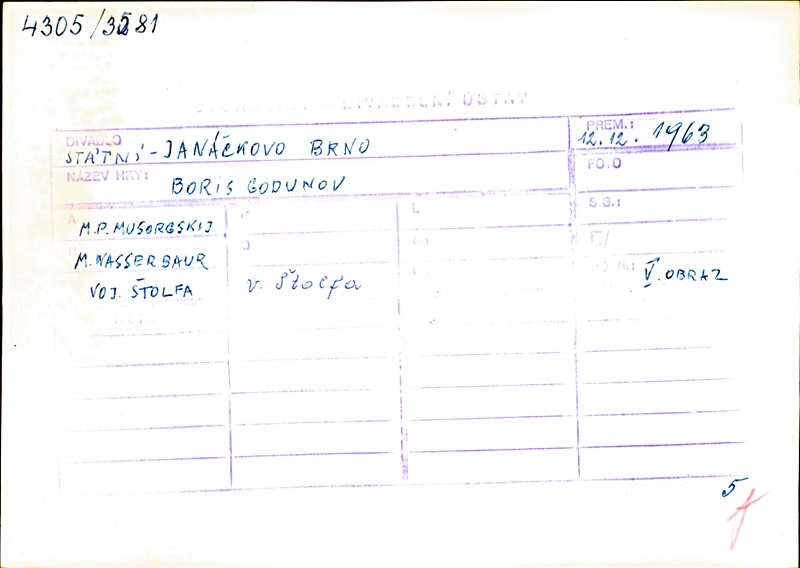 4305/3581
DIVADELNÍ ÚSTAV
DIVADLO
STÁTNÍ - JANÁČKOVO BRNO
PREM.:
12.12. 1963
NÁZEV HRY:
BORIS GODUNOV
FO.O
S.G.:
A
M.P. MUSORGSKIJ
M. WASSERBAUR
VOJ. ŠTOLFA
V. Štolfa
L
Č/
V. OBRAZ
5